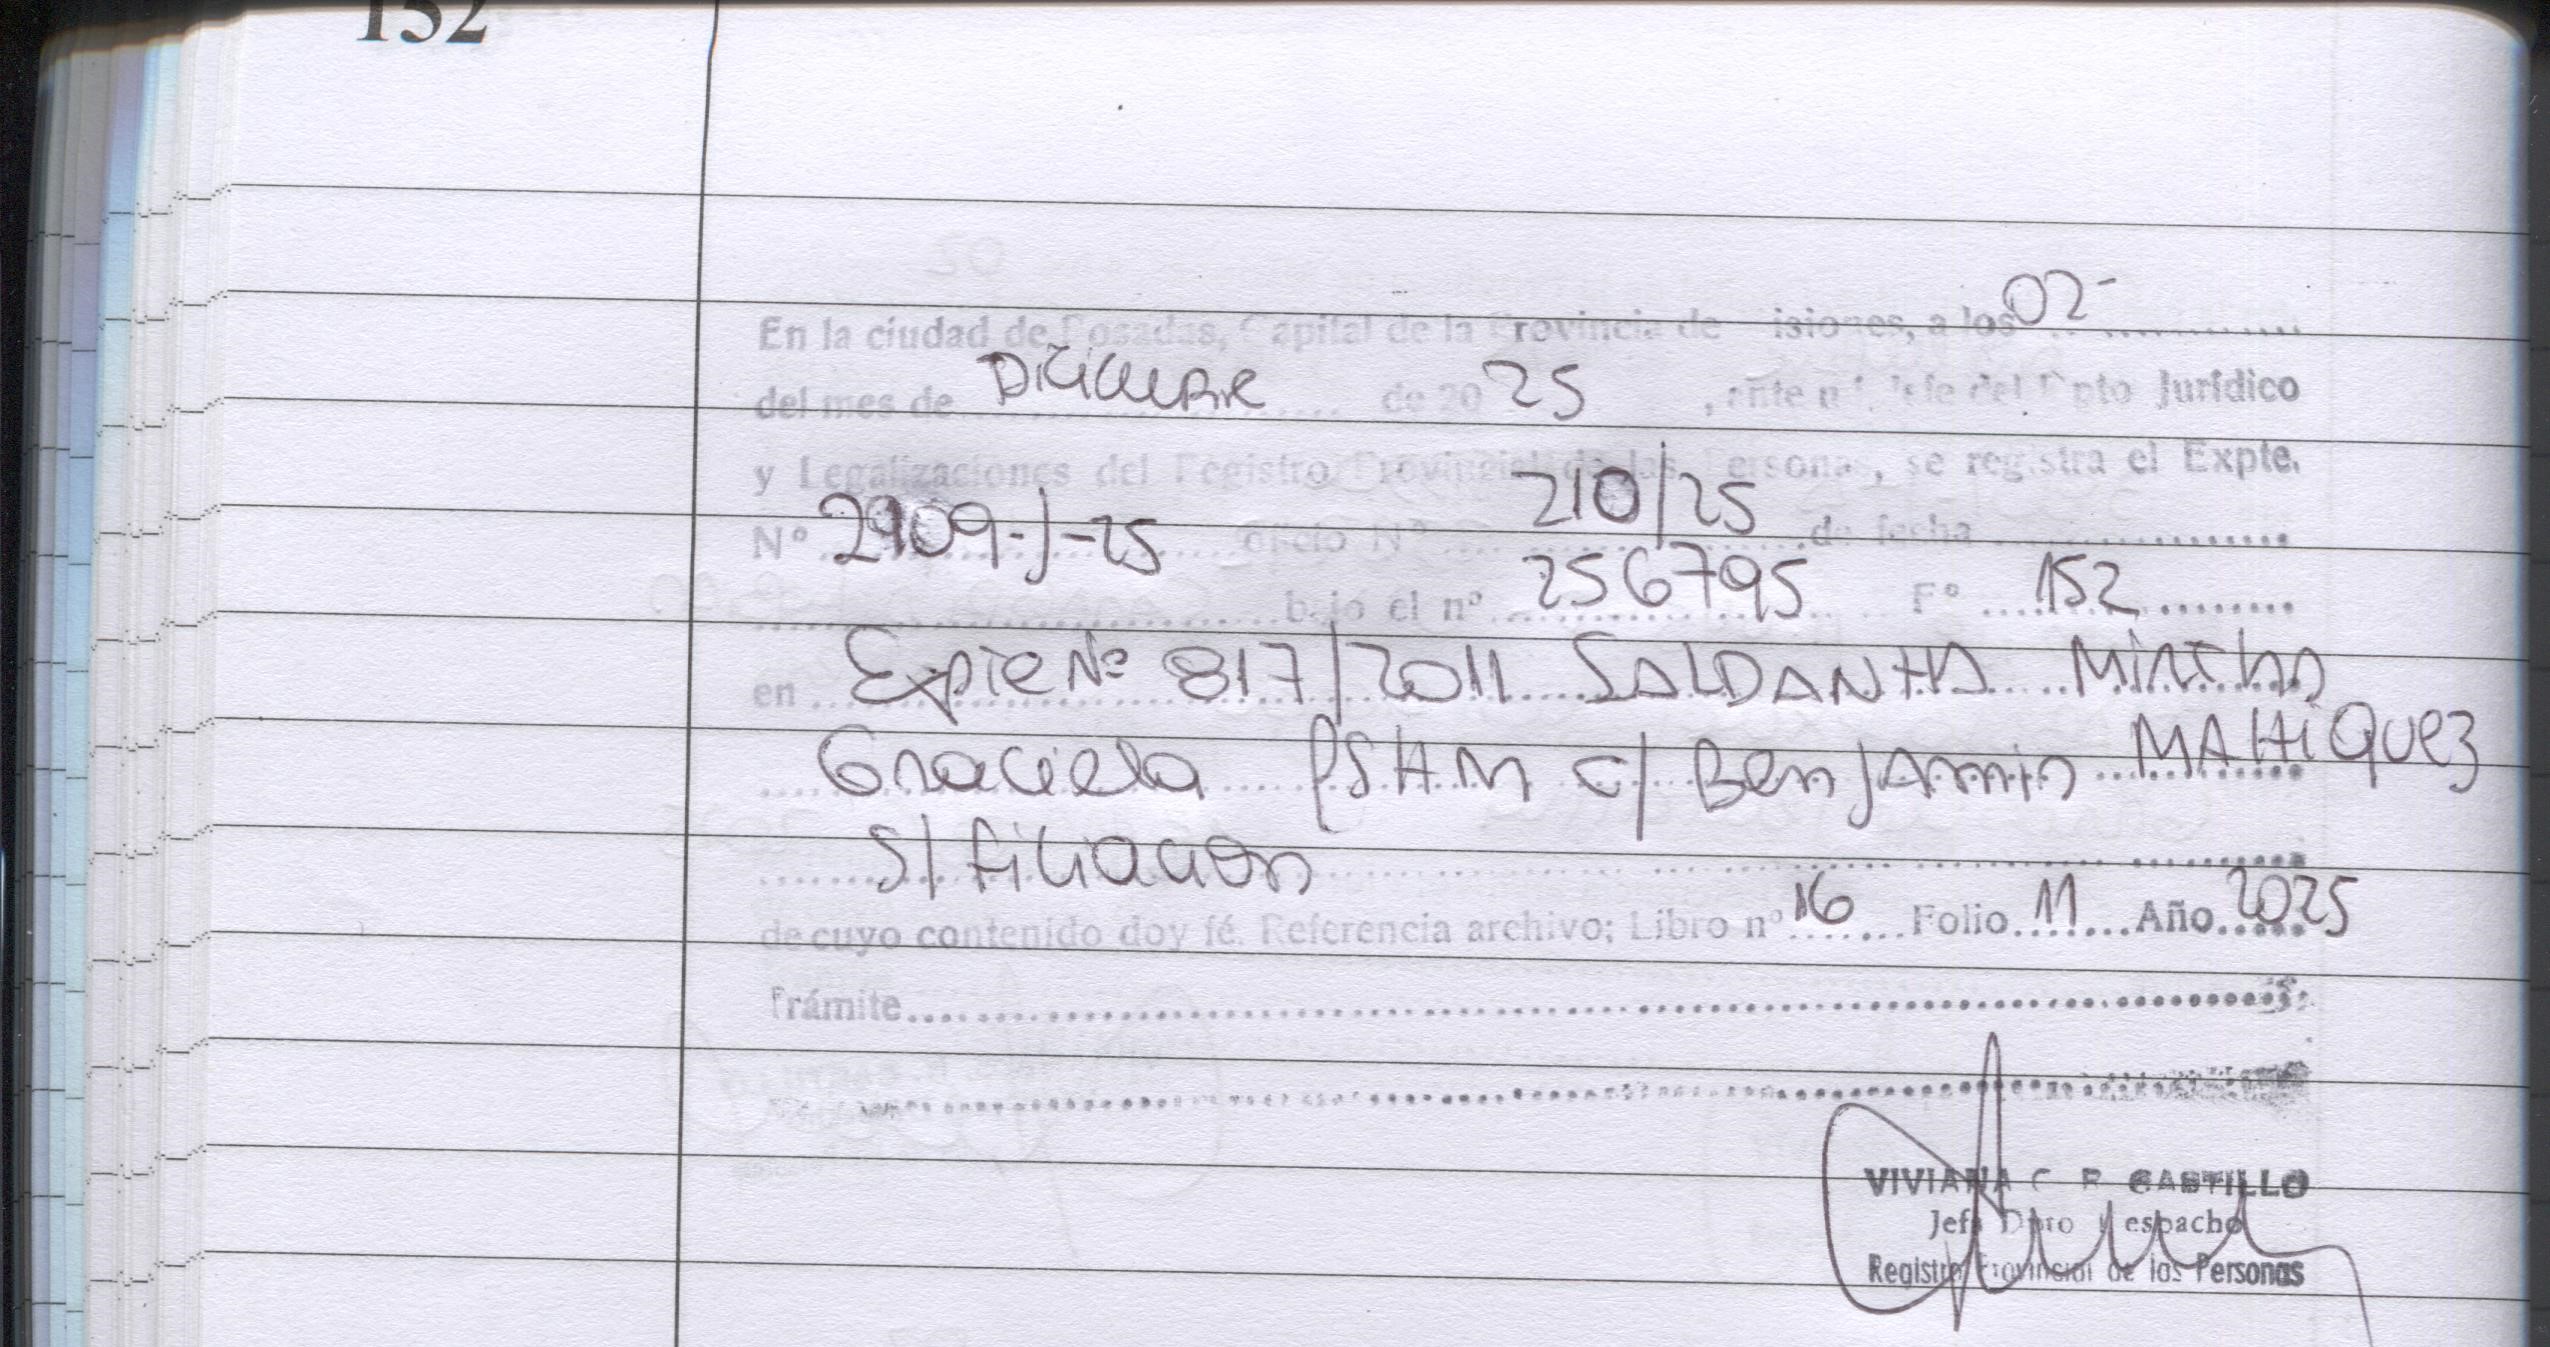 152
En la ciudad de Posadas, Capital de la Provincia de Misiones, a los 02-
del mes de Diciembre de 20 25, ante mi Jefe del Dpto Jurídico
y Legalizaciones del Registro Provincial de las Personas, se registra el Expte.
Nº 2909-J-25 Oficio Nº 210/25 de fecha
bajo el nº 256795 Fº 152
en Expte Nº 817/2011 SALDANHA Mirtha
Graciela PSHM c/ Benjamin MAHiquez
S/ filiacion
de cuyo contenido doy fé. Referencia archivo; Libro nº 16 Folio 11 Año 2025
Trámite
VIVIANA C. R. CASTILLO
Jefa Dpto Despacho
Registro Provincial de las Personas